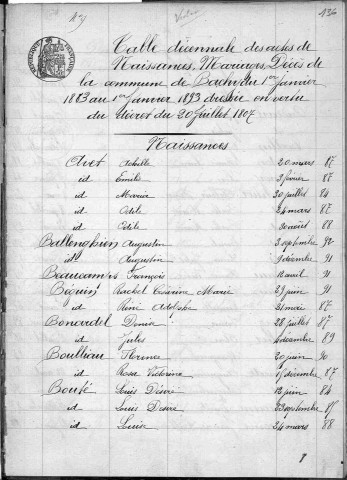 136
Table décennale des actes de
Naissances, Mariages, Décès de
la commune de Bachy du 1er Janvier
1883 au 1er Janvier 1893 dressée en vertu
du décret du 20 Juillet 1807
Naissances
Avet Achille 20 mars 87
id Emile 3 février 87
id Marie 30 juillet 84
id Odile 24 mars 87
id Odile 30 août 88
Ballenghien Augustin 3 septembre 92
id Augustin 9 décembre 91
Beaucamps François 13 avril 91
Béguin Rachel Césarine Marie 29 juin 91
id René Adolphe 21 mai 87
Bonardel Denise 28 juillet 87
id Jules 4 décembre 89
Boulliau Florence 20 juin 90
id Rosa Victorine 15 décembre 87
Bouté Louis Désiré 12 juin 84
id Louis Désiré 23 septembre 85
id Louise 24 mars 88